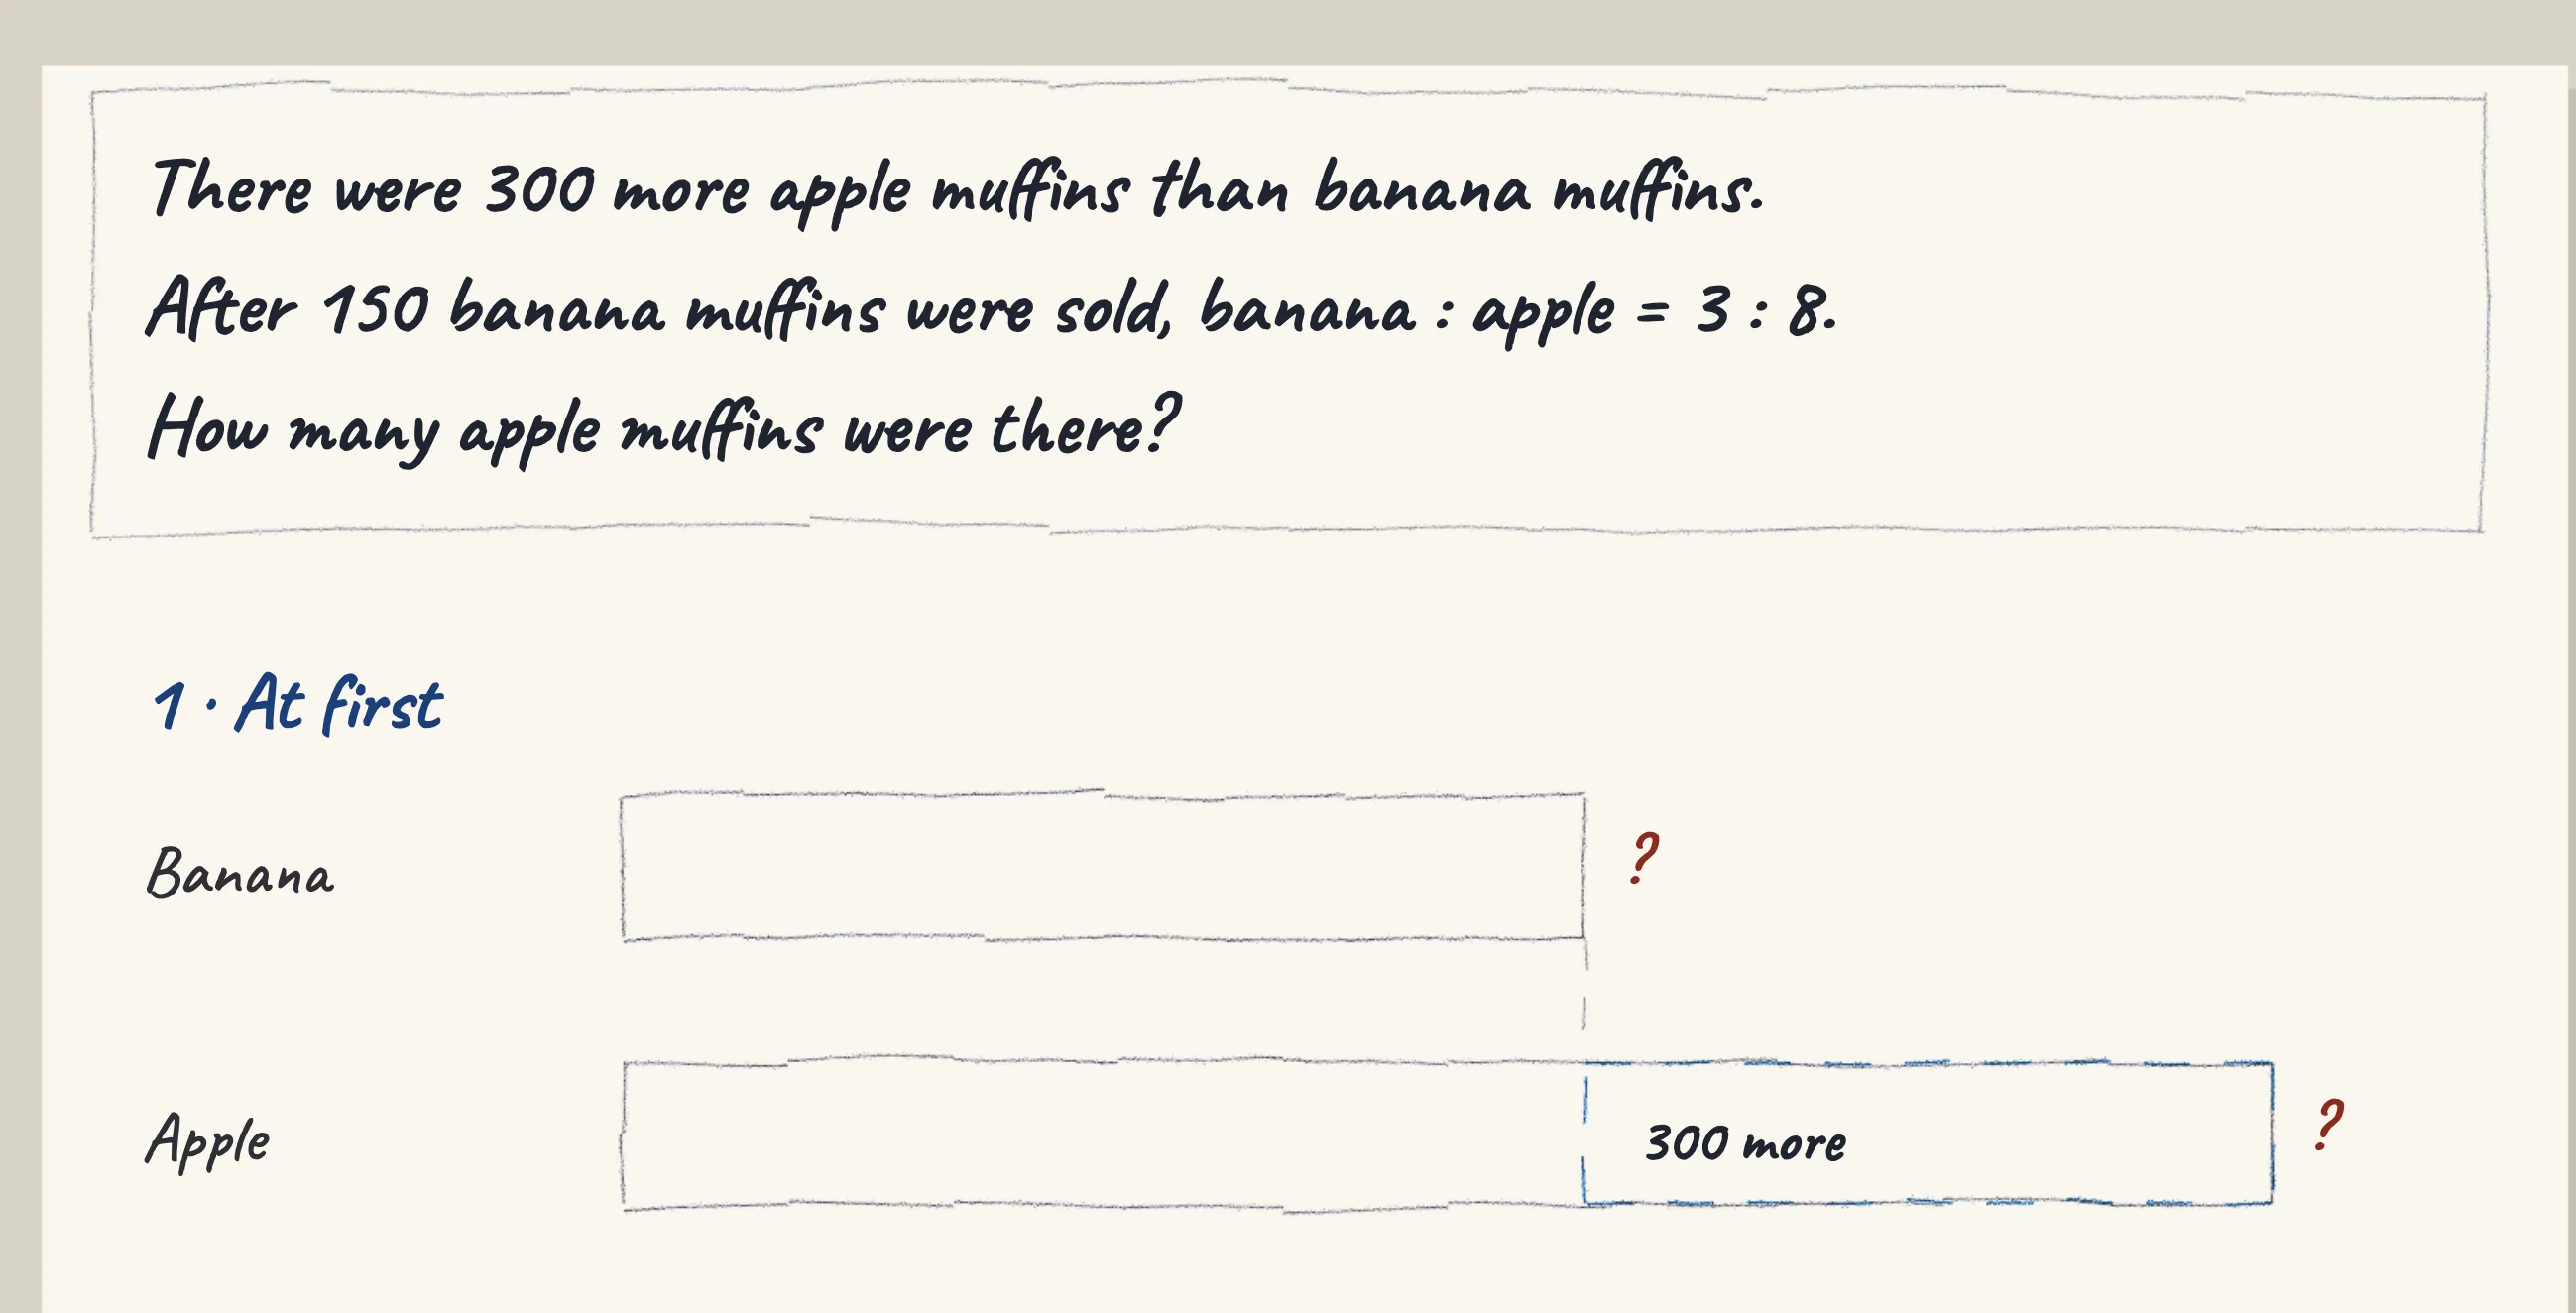 There were 300 more apple muffins than banana muffins.
After 150 banana muffins were sold, banana : apple = 3 : 8.
How many apple muffins were there?
1 · At first
Banana
?
Apple
300 more
?